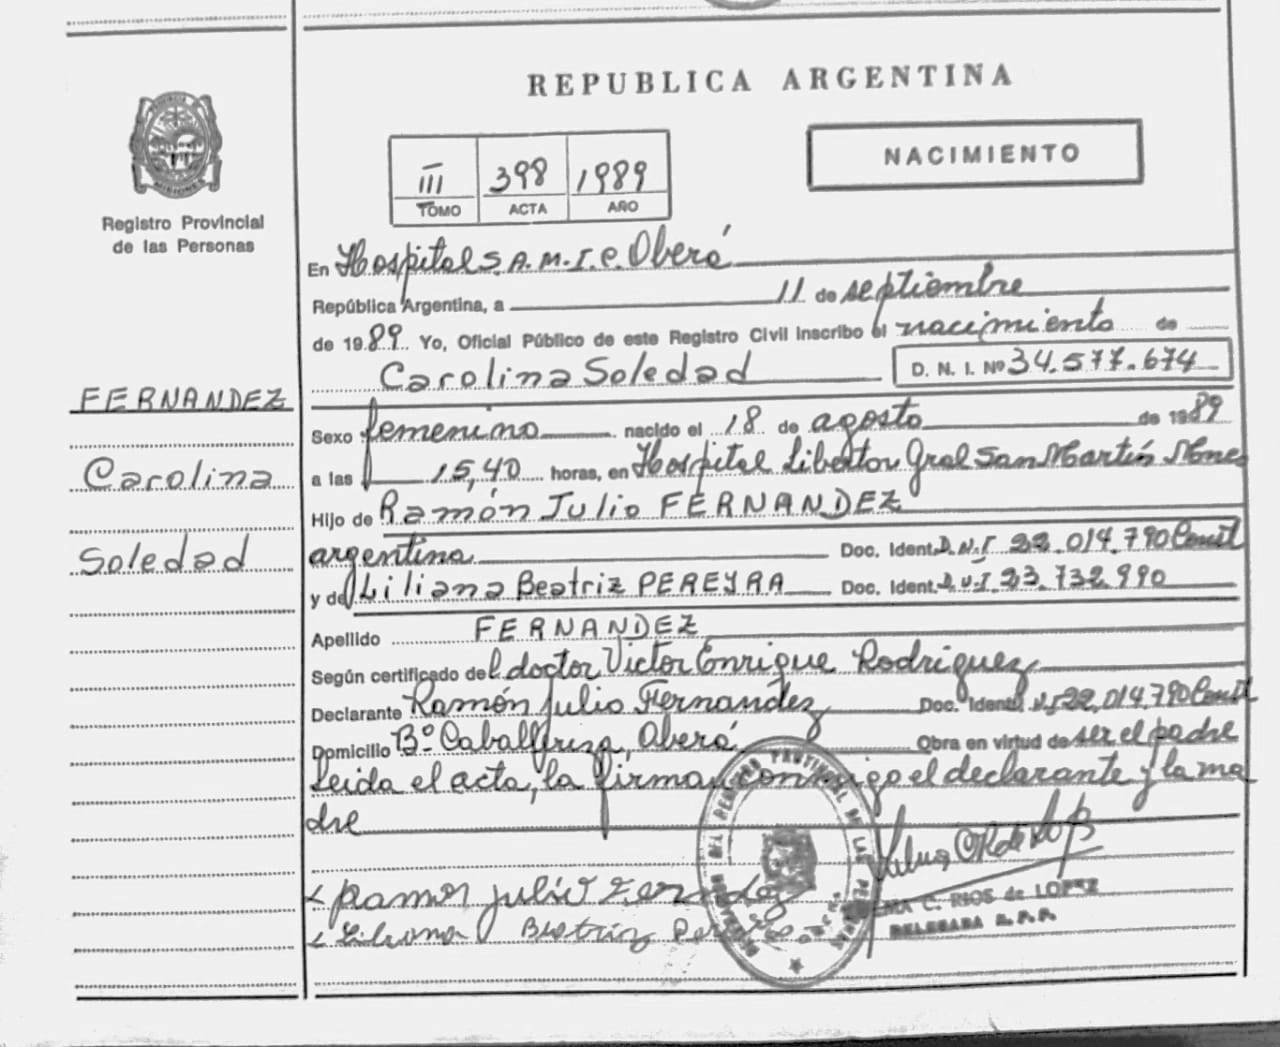 REPUBLICA ARGENTINA
NACIMIENTO
III 398 1989
TOMO ACTA AÑO
MISIONES
Registro Provincial
de las Personas
FERNANDEZ
Carolina
Soledad
En Hospital S.A.M.I.C. Oberá
República Argentina, a 11 de septiembre
de 1989. Yo, Oficial Público de este Registro Civil inscribo el nacimiento de
Carolina Soledad D. N. I. Nº 34.577.674
Sexo femenino nacido el 18 de agosto de 1989
a las 15,40 horas, en Hospital Libertor Gral San Martín
Hijo de Ramón Julio FERNANDEZ
argentina Doc. Ident. D.N.I 22.014.790
y de Liliana Beatriz PEREYRA Doc. Ident. D.N.I. 23.732.990
Apellido FERNANDEZ
Según certificado del doctor Victor Enrique Rodriguez
Declarante Ramón Julio Fernandez Doc. Ident. 22.014.790
Domicilio Bº Caballeriza, Oberá Obra en virtud de ser el padre
Leida el acta, la firman conmigo el declarante y la ma
dre
Ramon julio
Beatriz
C. RIOS de LOPEZ
DELEGADA R.P.P.